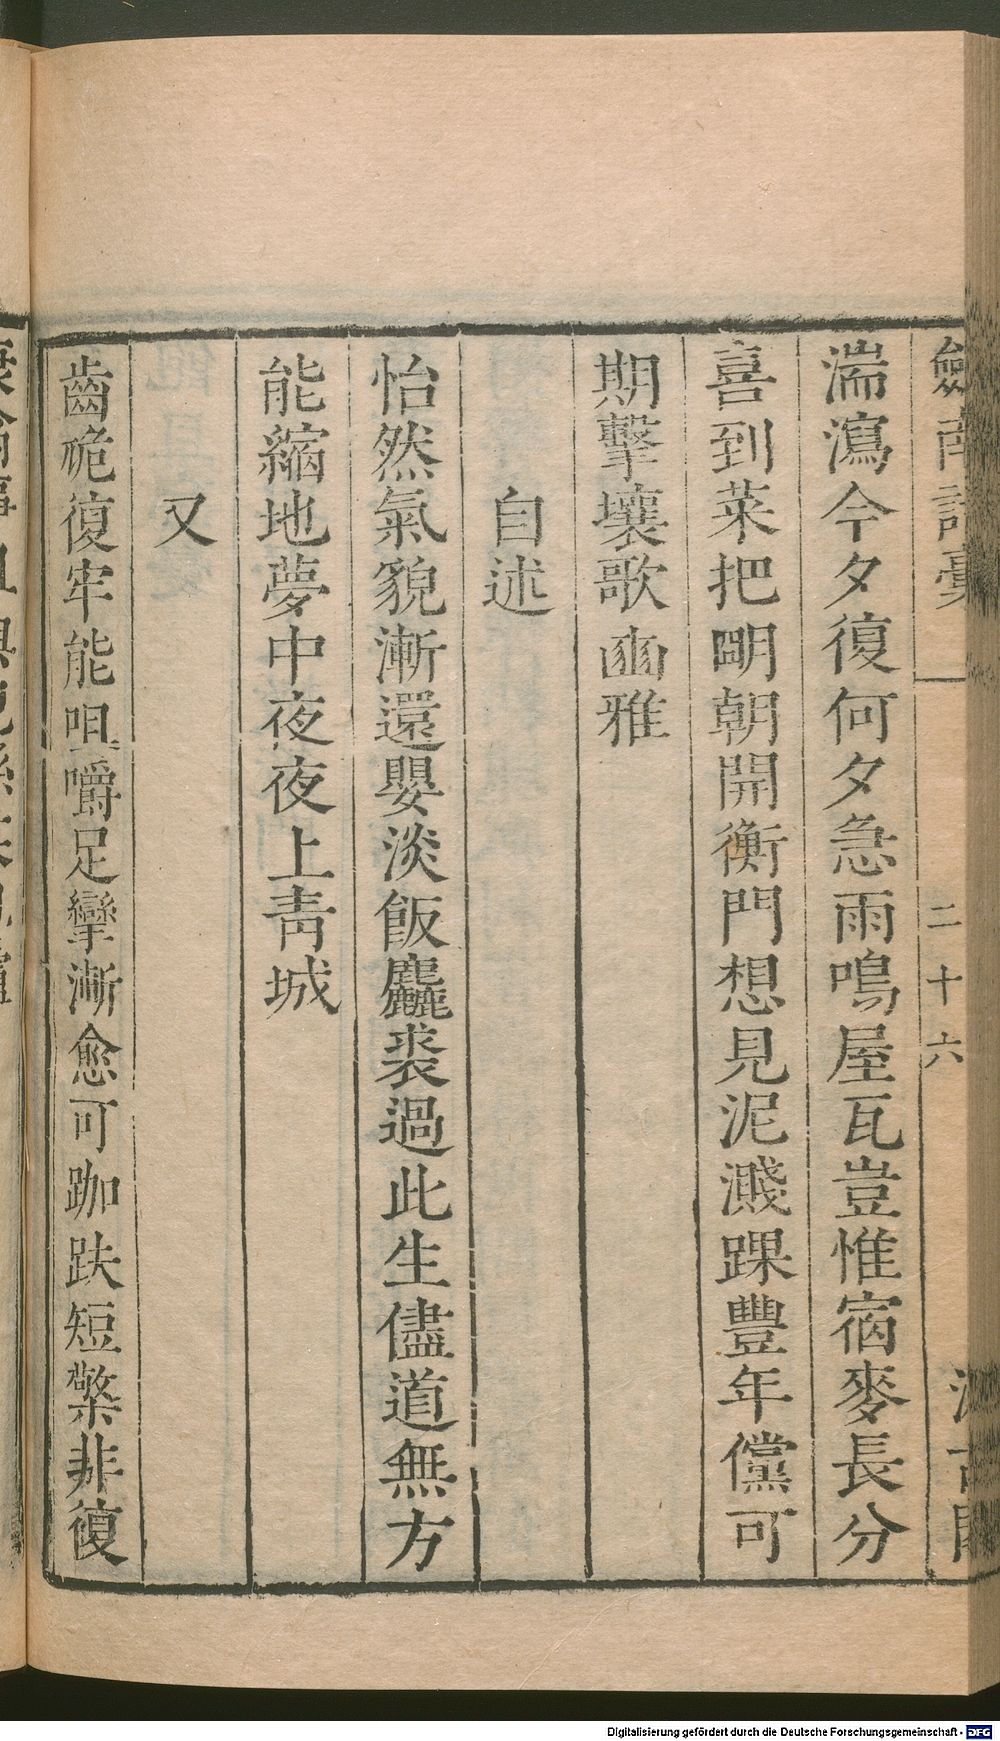 劒南詩稾
二十六
汲古閣
湍瀉今夕復何夕急雨鳴屋瓦豈惟宿麥長分
喜到菜把明朝開衡門想見泥濺踝豐年儻可
期擊壤歌豳雅
自述
怡然氣貌漸還嬰淡飯麤裘過此生儘道無方
能縮地夢中夜夜上青城
又
齒危復牢能咀嚼足攣漸愈可跏趺短檠非復
Digitalisierung gefördert durch die Deutsche Forschungsgemeinschaft - DFG